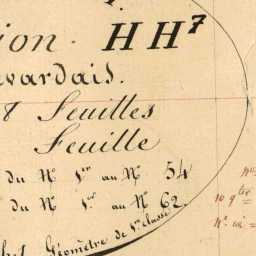 ion. HH7
vardais.
8 Feuilles
Feuille
du Nº 1er au Nº 54
du Nº 1er au Nº 62.
Géomètre de 1re classe
10 qter